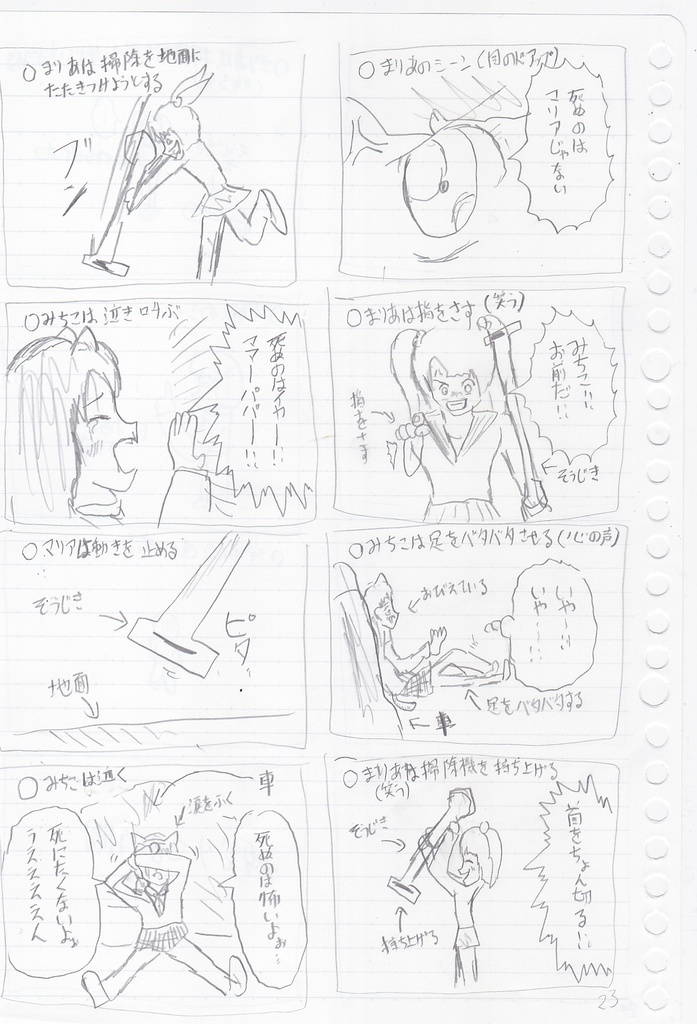 ○まりあのシーン(目のドアップ)
死ぬのは
マリアじゃない
○まりあは指をさす(笑う)
みちこ!!
お前だ!!
指をさす
そうじき
○みちこは足をバタバタさせる(心の声)
いやー!!
いやー!!
おびえている
足をバタバタする
車
○まりあは掃除機を持ち上げる
(笑う)
首をちょん切る!!
そうじき
持ち上げる
○まりあは掃除を地面に
たたきつけようとする
ブン
○みちこは泣き叫ぶ
死ぬのはイヤー!!
ママーパパー!!
○マリアは動きを止める
ぞうじき
ピタ
地面
○みちこは泣く
車
涙をふく
死ぬのは怖いよぉ…
死にたくないよぉ
うえええええん
23